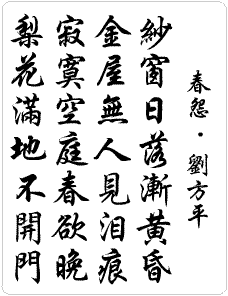 春怨·劉方平
紗窗日落漸黃昏
金屋無人見淚痕
寂寞空庭春欲晚
梨花滿地不開門